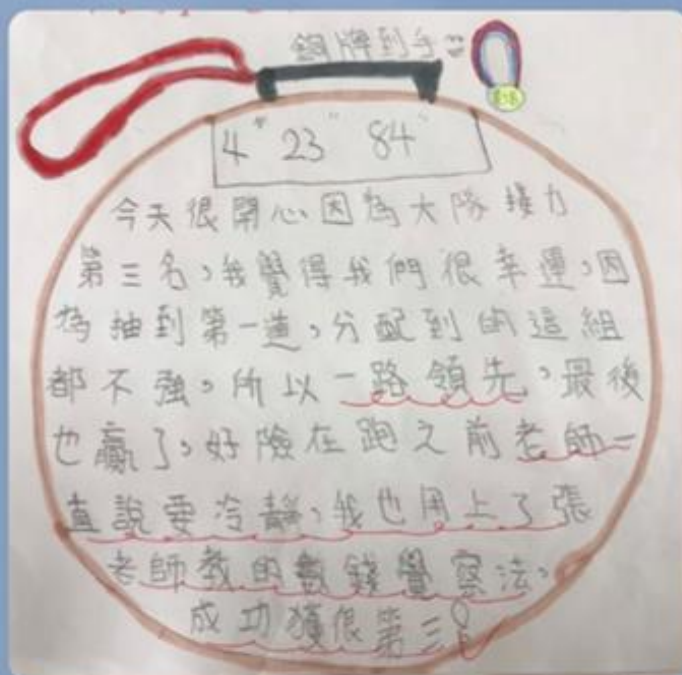 銅牌到手
4" 23" 84"
今天很開心因為大隊接力
第三名,我覺得我們很幸運,因
為抽到第一道,分配到的這組
都不強,所以一路領先,最後
也贏了,好險在跑之前老師一
直說要冷靜,我也用上了張
老師教的數錢覺察法,
成功獲很第三名